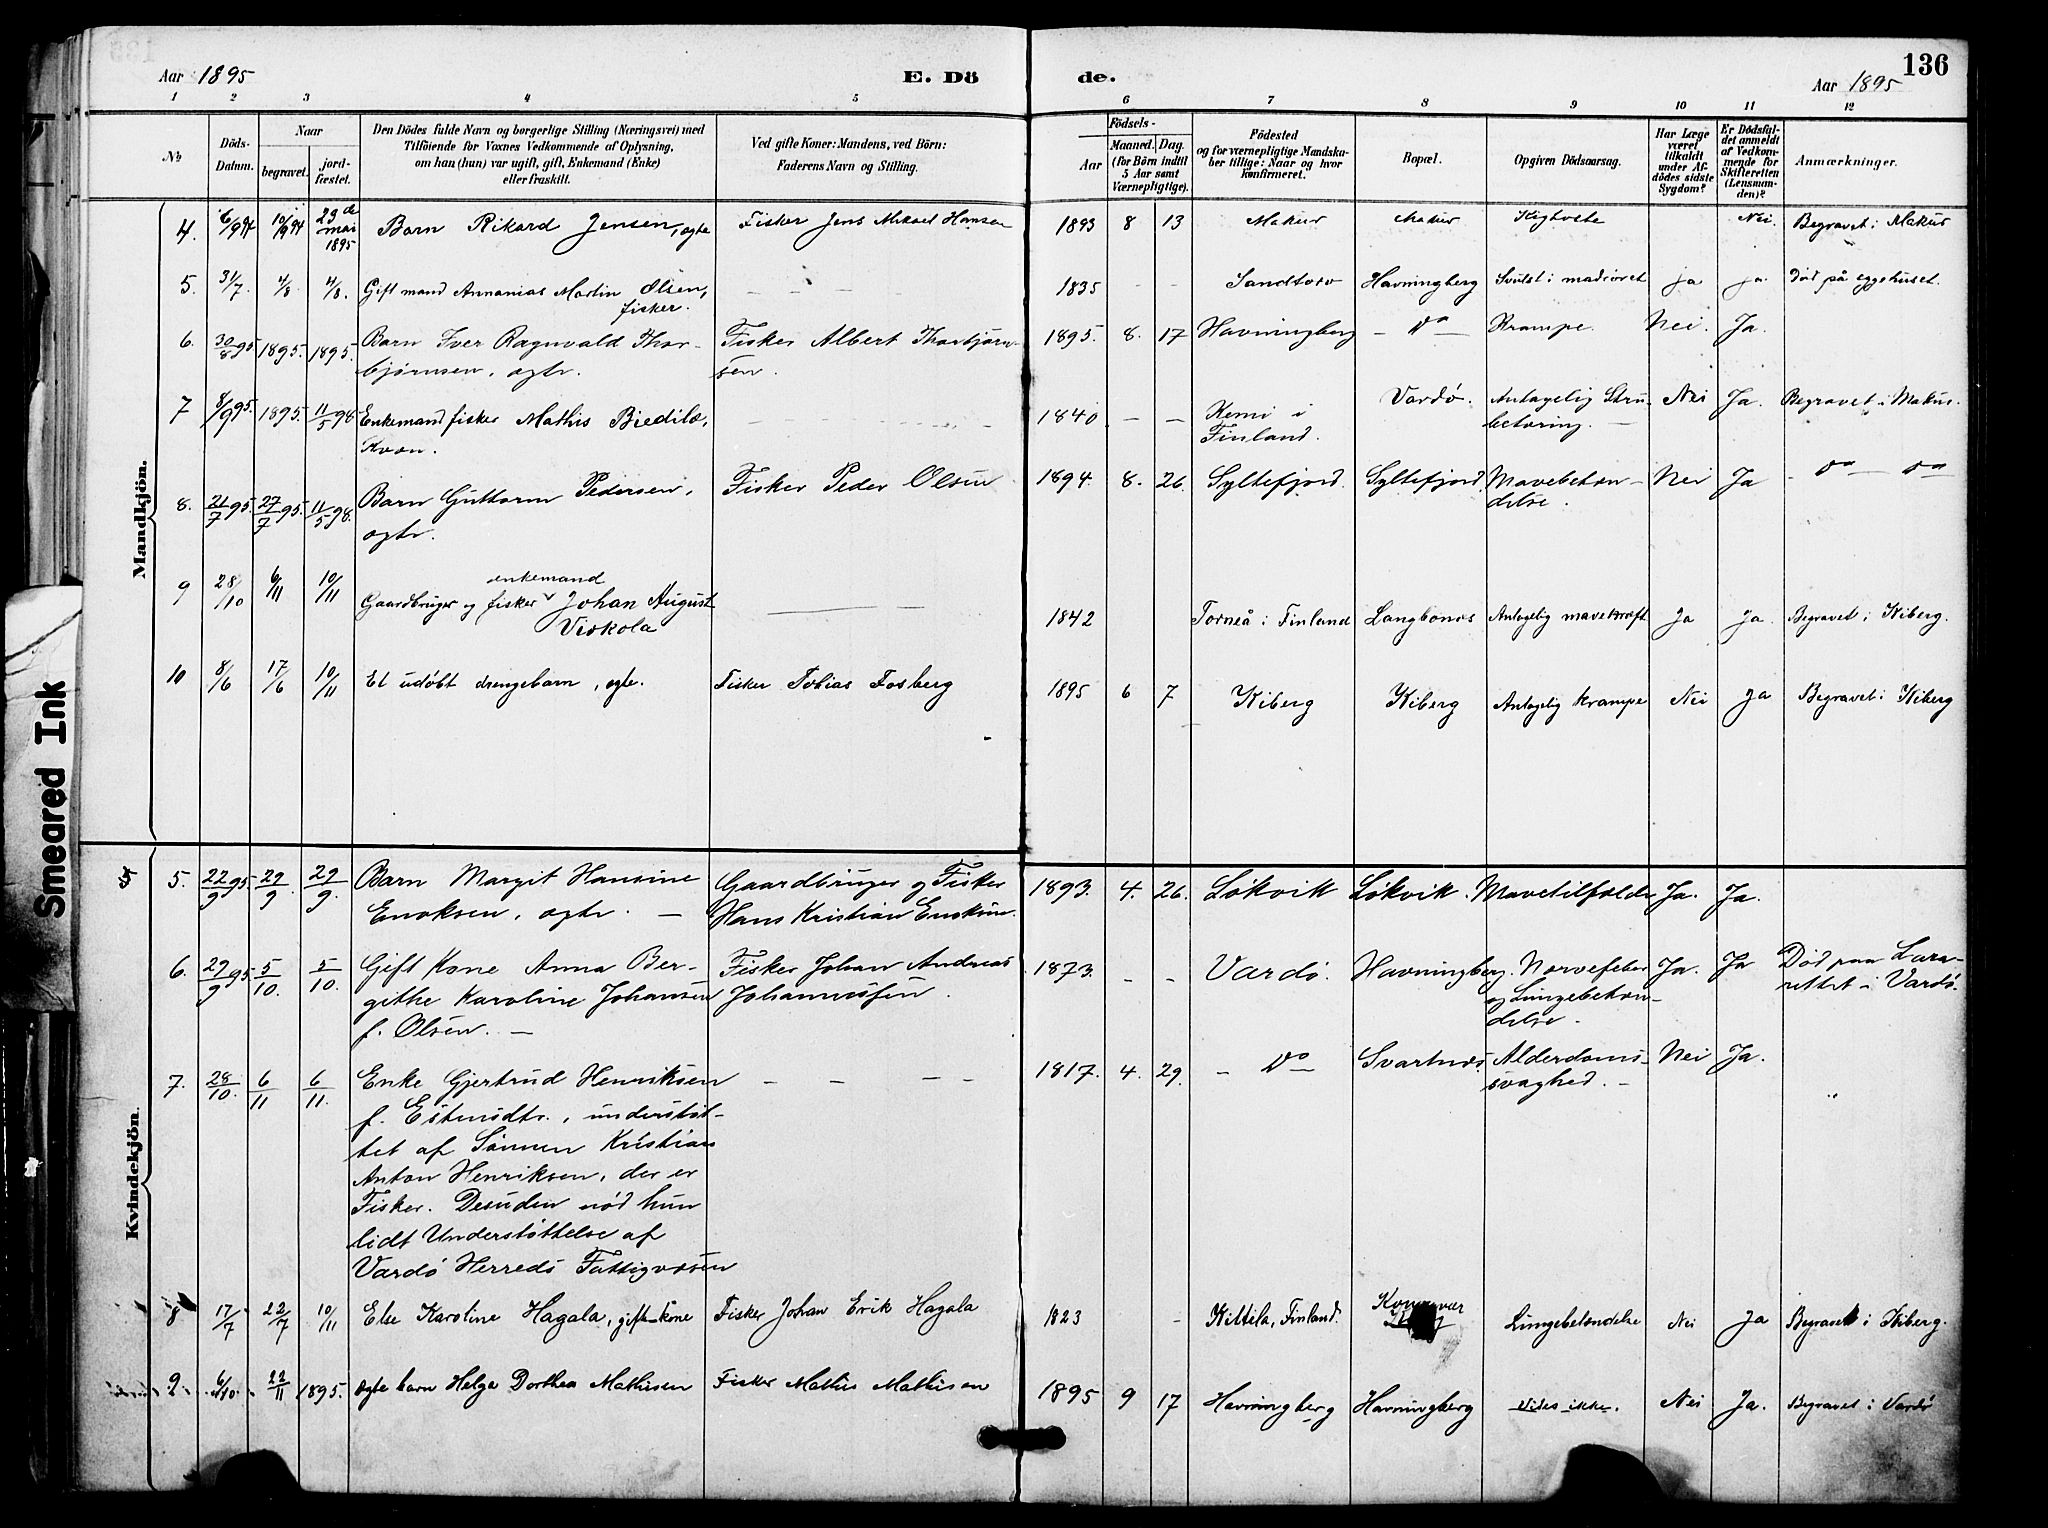 136
Aar 1895
E. Dö
de.
Aar 1895
1 2 3 4 5 6 7 8 9 10 11 12
No
Döds-Datum.
Naar
begravet.
jord-fæstet.
Den Dödes fulde Navn og borgerlige Stilling (Næringsvei) med
Tilföiende for Voxnes Vedkommende af Oplysning,
om han (hun) var ugift, gift, Enkemand (Enke)
eller fraskilt.
Ved gifte Koner: Mandens, ved Börn:
Faderens Navn og Stilling.
Födsels-
Aar
Maaned. Dag.
(for Börn indtil
5 Aar samt
Værnepligtige).
Födested
og for værnepligtige Mandska-
ber tillige: Naar og hvor
konfirmeret.
Bopæl.
Opgiven Dödsaarsag.
Har Læge
været
tilkaldt
under Af-
dödes sidste
Sygdom?
Er Dödsfal-
det anmeldt
af Vedkom-
mende for
Skifteretten
(Lensman-
den)?
Anmærkninger.
Mandkjön.
4. 6/9 94 10/9 94 23de mai 1895 Barn Rikard Jensen, ægte Fisker Jens Mikael Hansen 1893 8 13 Makur Makur Kighoste Nei. Begravet i Makur
5. 31/7 4/8 4/8. Gift mand Annanias Martin Olsen, — — — — 1835 - - Sandtorv Havningberg Svulst i madrøret ja ja Död på sygehuset.
fisker.
6. 30/8 95 1895. 1895. Barn Iver Ragnvald Thor- Fisker Albert Thorbjørn- 1895. 8. 17 Havningberg — Do — Krampe. Nei. Ja.
bjørnsen, ægte. sen.
7 8/9 95. 1895. 11/5 98 Enkemand fisker Mathis Biedilæ, — — — 1840 — — Kemi i Vardø. Antagelig Stru- Nei Ja. Begravet i Makur.
Kvæn. Finland. betæring. —
8. 21/7 95. 27/7 95. 11/5 98. Barn Guttorm Pedersen, Fisker Peder Olsen 1894. 8. 26. Syltefjord Syltefjord Mavebetæn- Nei Ja - Do — Do
ægte. delse.
enkemand
9 28/10 6/11 10/11 Gaardbruger og fisker Johan August — 1842 Torneå i Finland Langbunes Antagelig mavekræft Ja Ja. Begravet i Kiberg.
Viskola
10 8/6 17/6 10/11 Et udøbt drengebarn, ægte. Fisker Tobias Fosberg 1895 6 7 Kiberg Kiberg Antagelig Krampe Nei Ja Begravet i Kiberg
Kvindekjön.
5. 22/9 95 29/9. 29/9. Barn Margit Hansine Gaardbruger og Fisker 1893. 4. 26. Løkvik Løkvik. Mavetilfælde Ja. Ja.
Enoksen, ægte. — Hans Kristian Enoksen.
6. 29/9 95 5/10. 5/10. Gift Kone Anna Ber- Fisker Johan Andreas 1873. - - Vardø. Havningberg. Nervefeber Ja. Ja Död paa Laza-
githe Karoline Johansen Johannessen. og Lungebetæn- rettet i Vardø.
f. Olsen. — delse.
7. 28/10. 6/11 6/11. Enke Gjertrud Henriksen — — — — 1817. 4. 29. - Do — Svartnes. Alderdoms- Nei Ja.
f. Estensdtr., understøt- svaghed. —
tet af Sønnen Kristian
Anton Henriksen, der er
Fisker. Desuden nöd hun
lidt Understøttelse af
Vardø Herreds Fattigvæsen
8 17/7 22/7 10/11 Else Karoline Hagala, gift kone Fisker Johan Erik Hagala 1823 - Kittila, Finland. Lungebetændelse Nei Ja Begravet i Kiberg.
9 6/10. 22/11 1895. ægte barn Helga Dorthea Mathisen Fisker Mathis Mathisen 1895 9 17 Havningberg Havningberg Vides ikke. Nei Ja. Begravet i Vardø
Smeared Ink